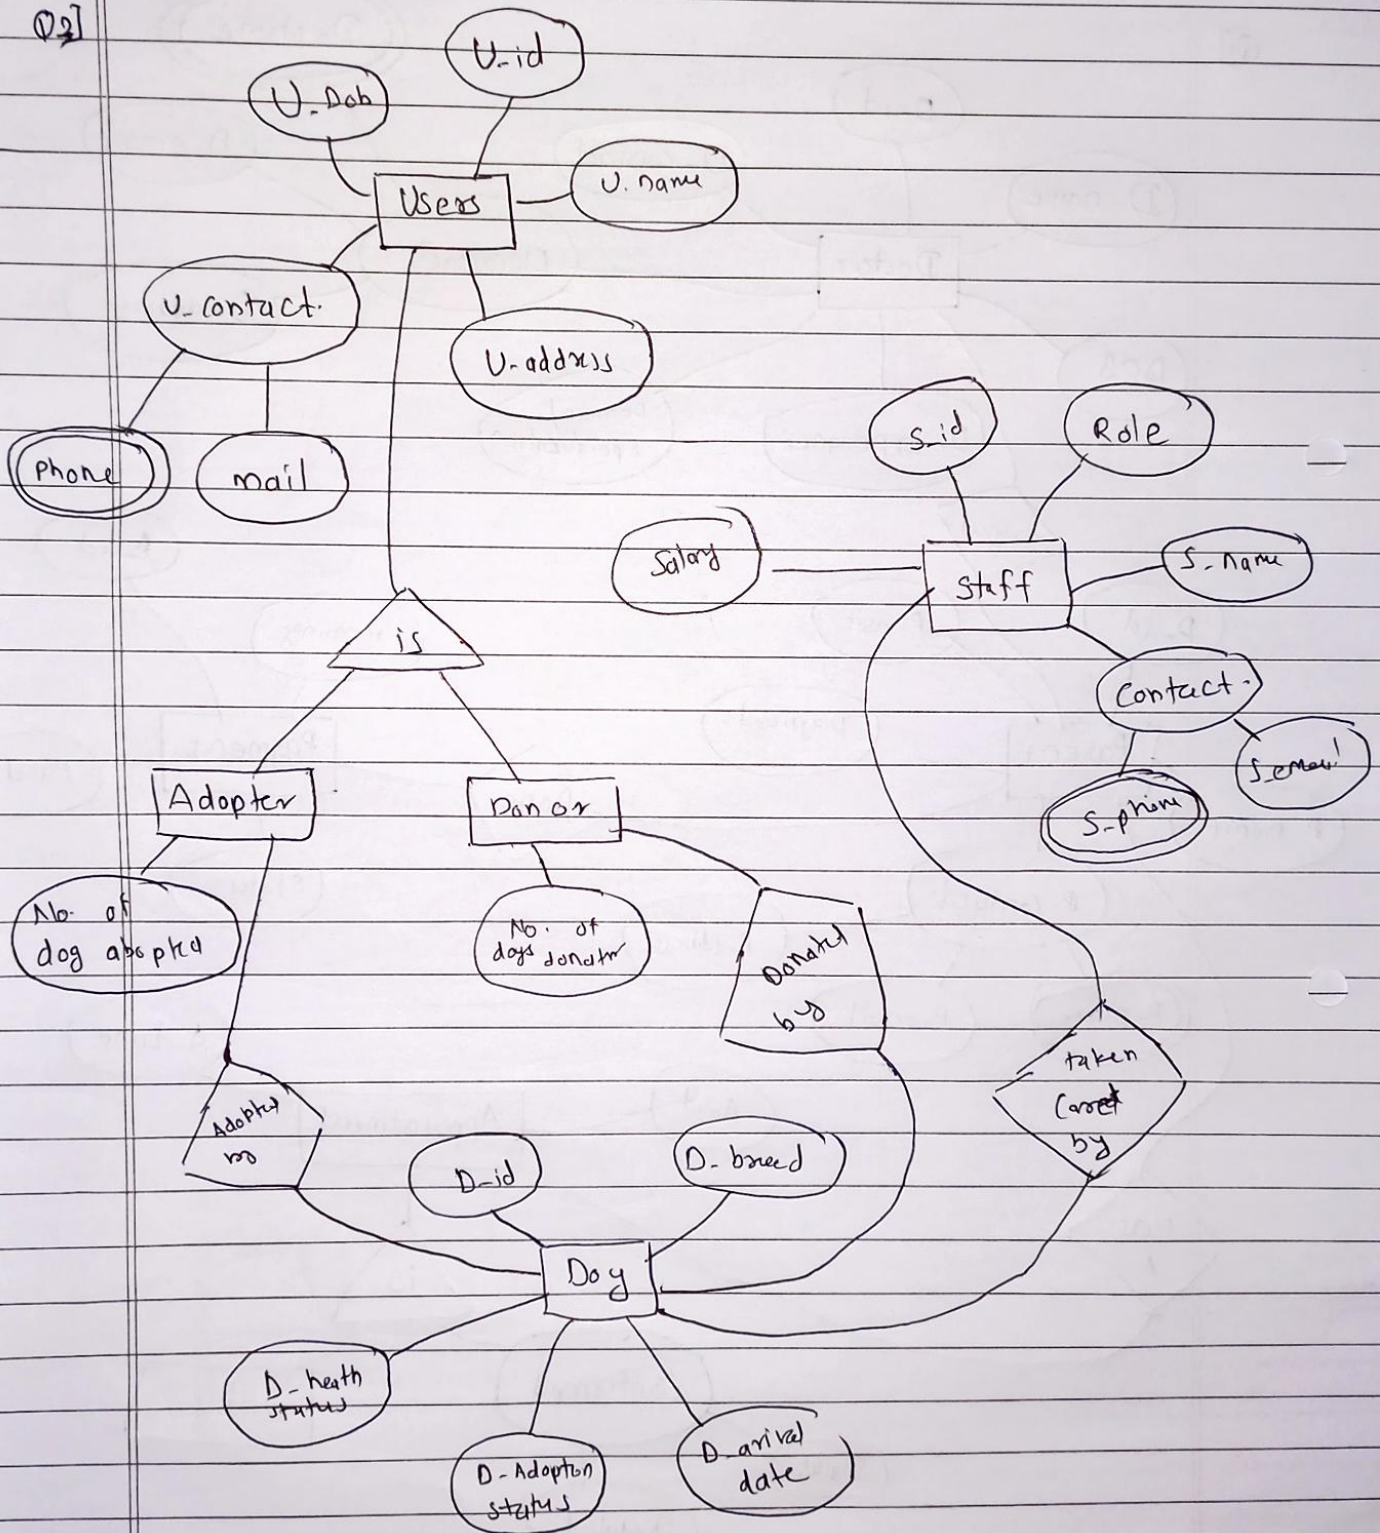 Q3]
U_id
U_Dob
U. name
Users
U_contact.
U-address
Phone
mail
S_id
Role
Salary
Staff
S_name
is
Contact.
S_email
S_phone
Adopter
Donor
No. of
dog abopted
No. of
dogs donatr
Donated
by
taken
Cared
by
Adopted
D_id
D_breed
Dog
D_heath
status
D-Adopton
status
D_arival
date